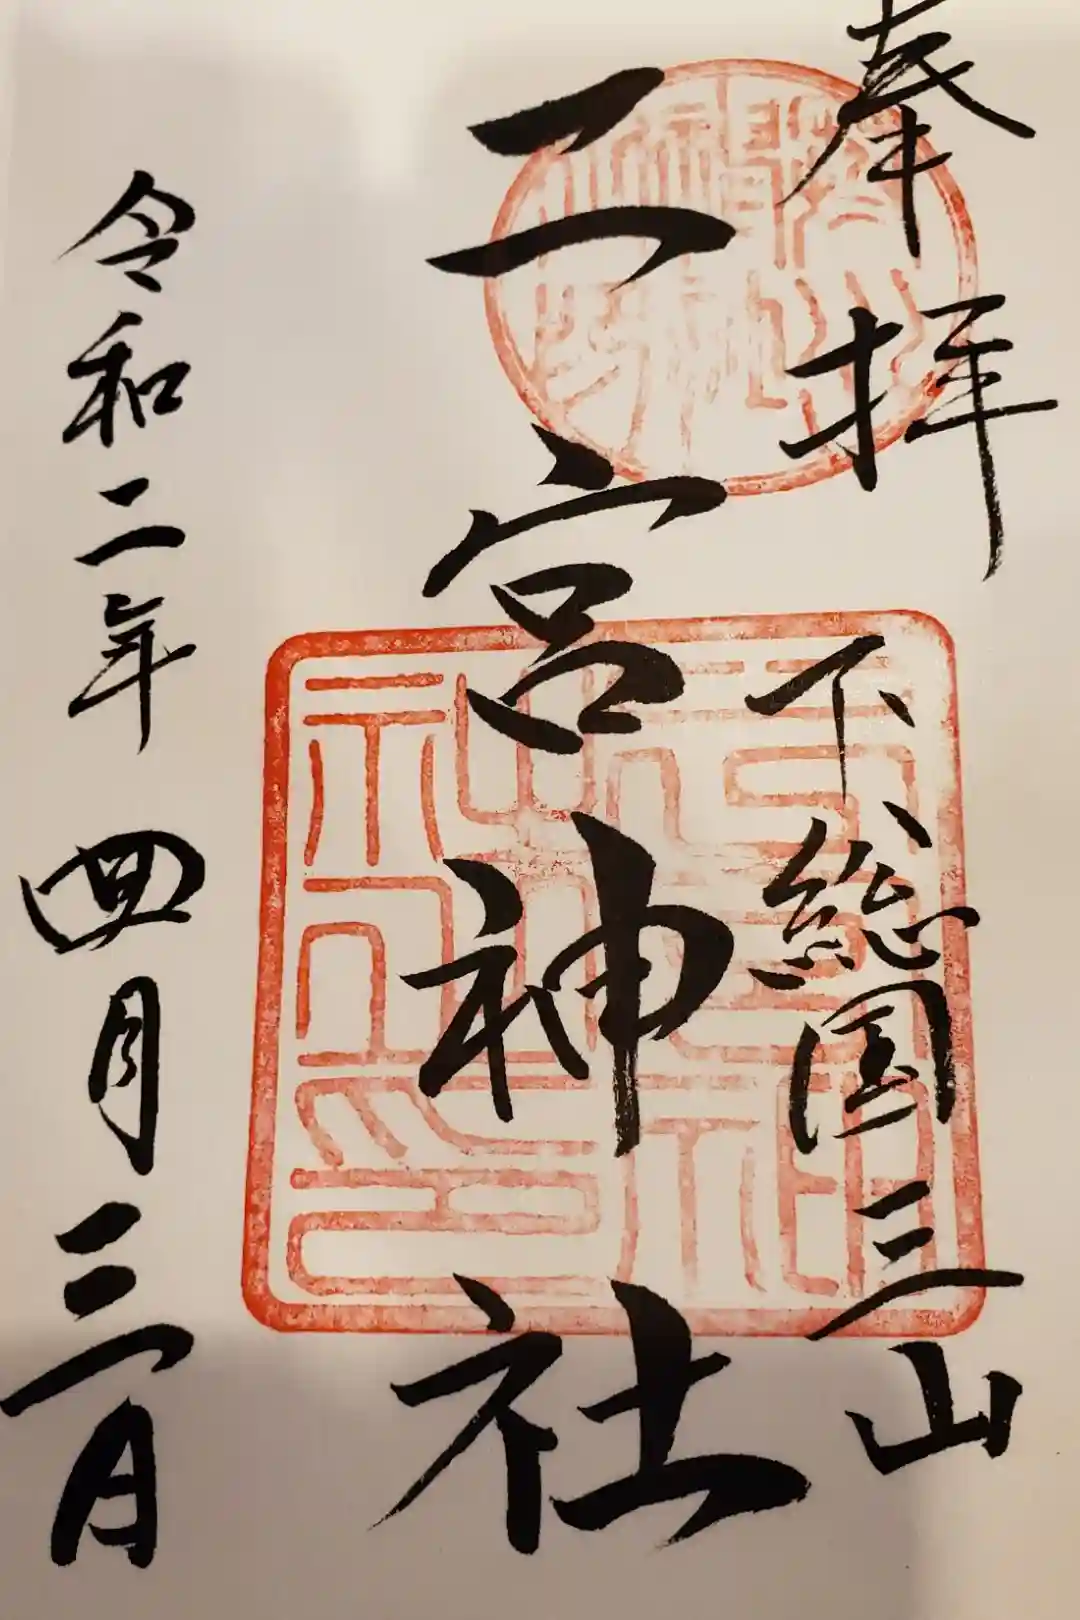 奉拝
下総国三山
二宮神社
令和二年四月三日